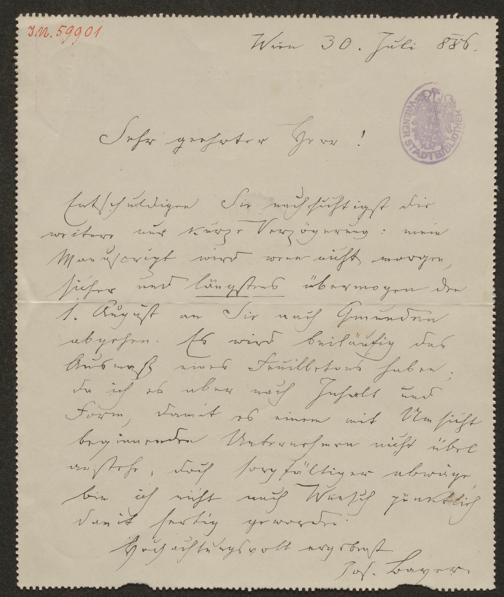 I.N. 59901
Wien 30. Juli 886.
WIENER STADTBIBLIOTHEK
Sehr geehrter Herr!
Entschuldigen Sie nachsichtigst die
weitere nur kurze Verzögerung: mein
Manuscript wird wenn nicht morgen,
sicher und längstens übermorgen den
1. August an Sie nach Gmunden
abgehen. Es wird beiläufig das
Ausmaß eines Feuilletons haben;
da ich es aber nach Inhalt und
Form, damit es einem mit Umsicht
beginnenden Unternehmen nicht übel
anstehe, doch sorgfältiger abwäge,
bin ich nicht nach Wunsch pünktlich
damit fertig geworden.
Hochachtungsvoll ergebenst
Jos. Bayer.